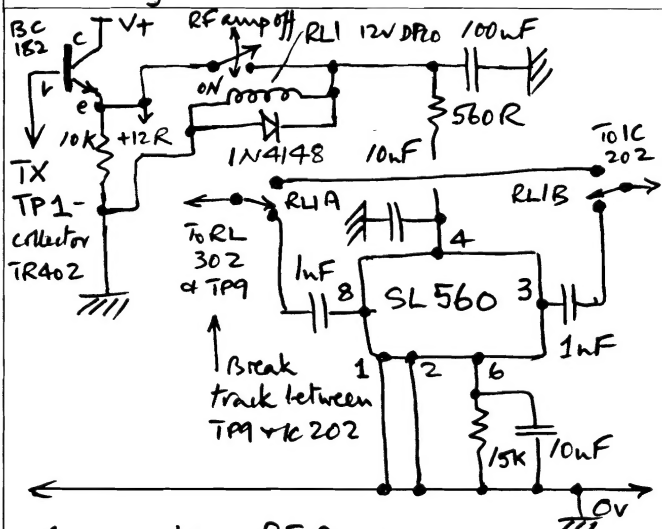 BC 182
c
V+
RF amp off
RL1
12V DPCO
100nF
b
e
ON
10K
+12R
1N4148
560R
10nF
TX
TP1-
collector
TR402
To IC
202
RL1A
RL1B
To RL
302
& TP9
4
1nF
8
SL560
3
1nF
1
2
6
Break
track between
TP9 & IC 202
15K
10nF
0v